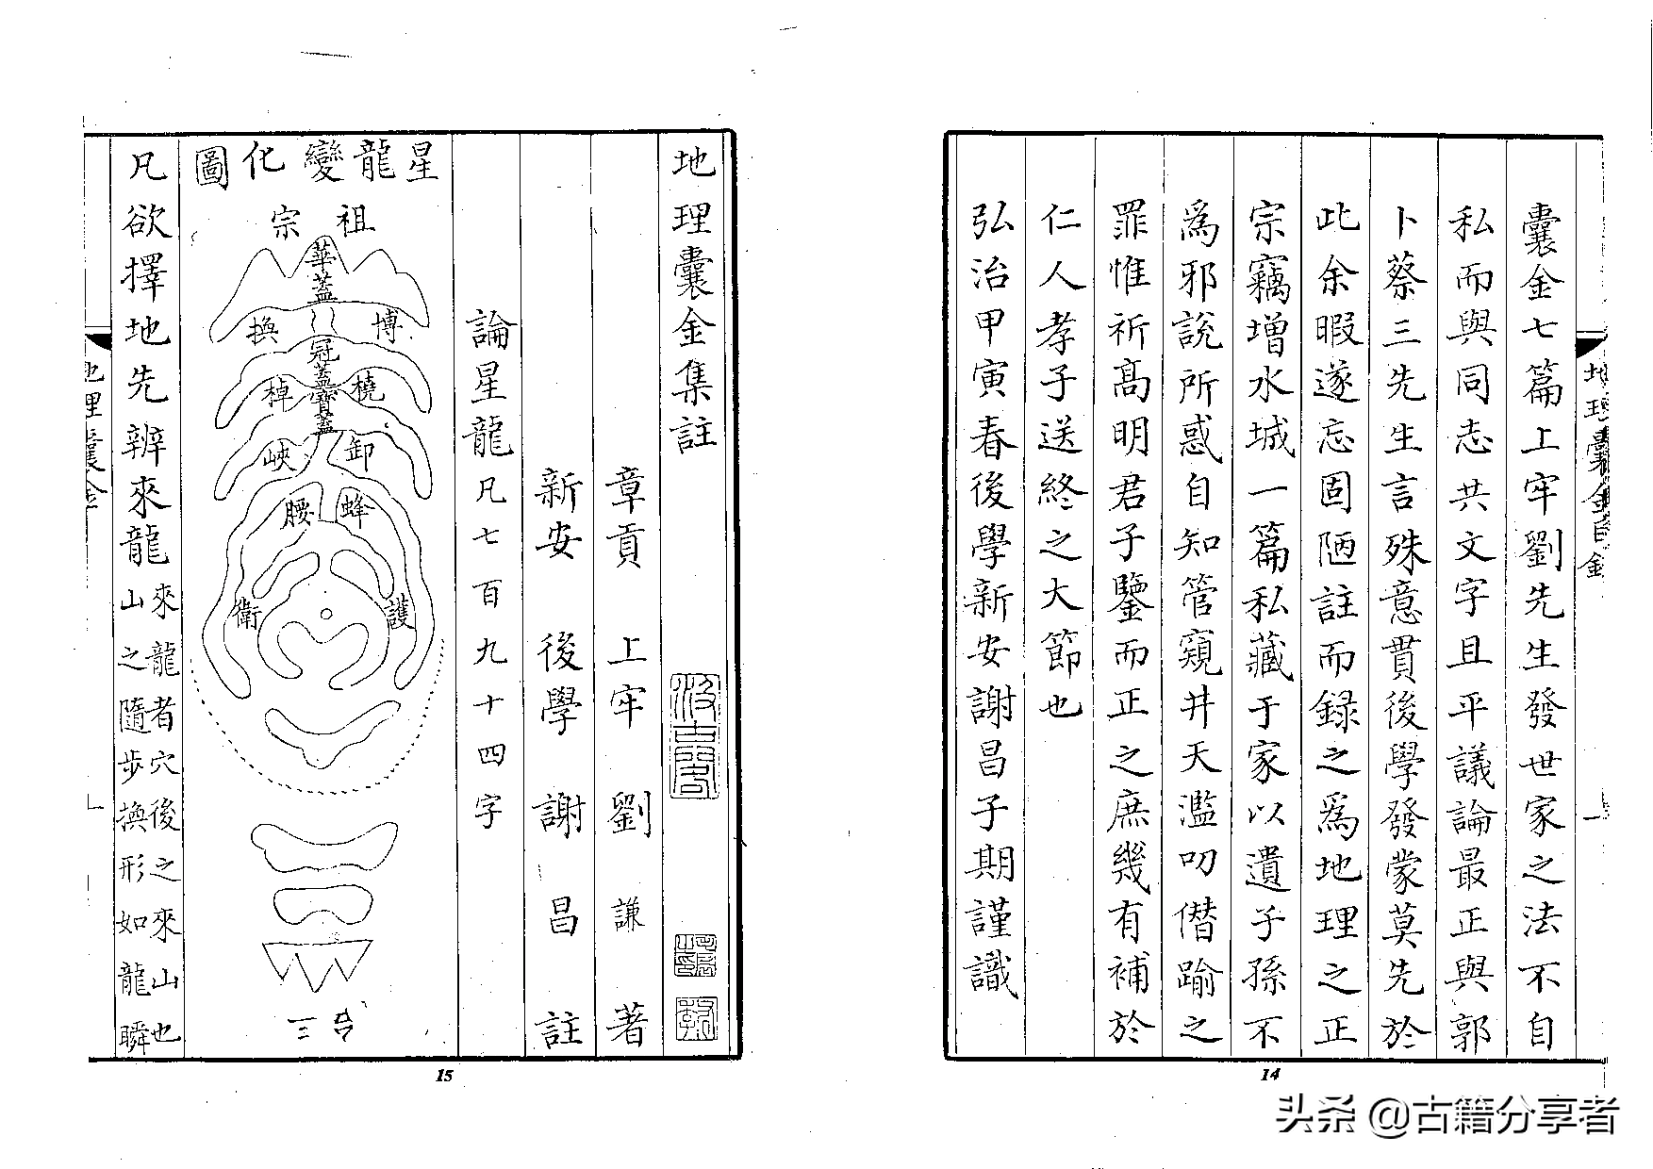 囊金七篇上牢劉先生發世家之法不自
私而與同志共文字且平議論最正與郭
卜蔡三先生言殊意貫後學發蒙莫先於
此余暇遂忘固陋註而録之爲地理之正
宗竊增水城一篇私藏于家以遺子孫不
爲邪說所惑自知管窺井天濫叨僭踰之
罪惟祈髙明君子鑒而正之庶幾有補於
仁人孝子送終之大節也
弘治甲寅春後學新安謝昌子期謹識
14
地理囊金集註
章貢 上牢 劉謙 著
新安 後學 謝昌 註
論星龍凡七百九十四字
星龍變化圖
祖宗
華蓋
博換
冠蓋
寶蓋
橈棹
卸峽
蜂腰
護衛
台三
凡欲擇地先辨來龍來龍者穴後之來山也
山之隨步換形如龍瞬
地理囊金
15
头条 @古籍分享者